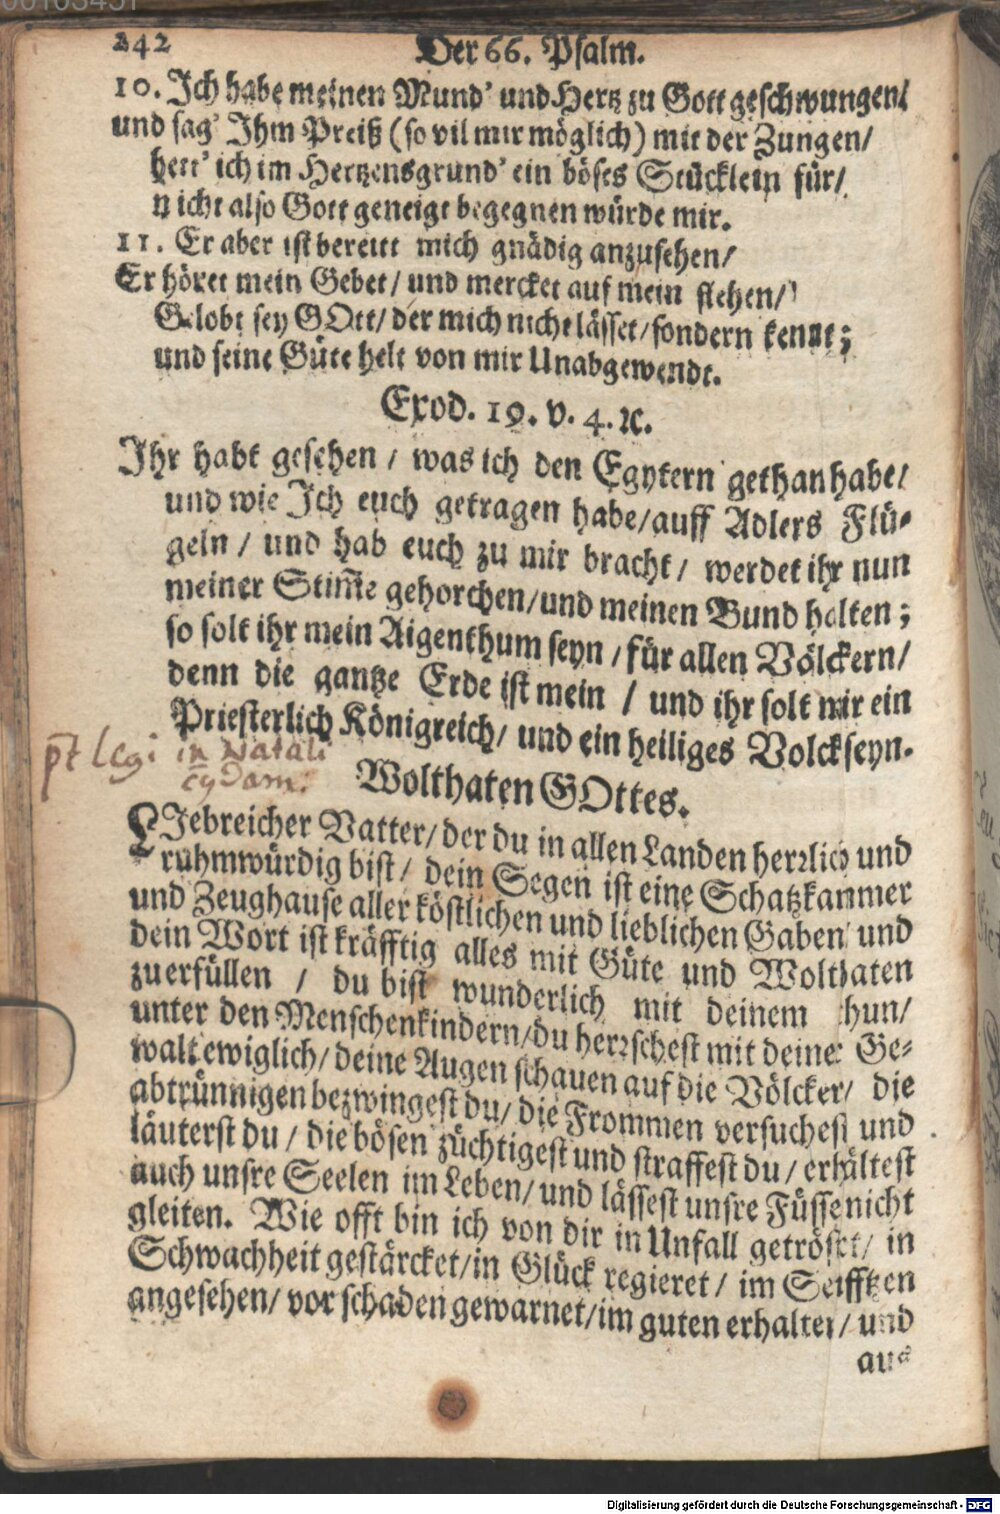 242 Der 66. Psalm.
10. Ich habe meinen Mund' und Hertz zu Gott geschwungen/
und sag' Ihm Preiß (so vil mir möglich) mit der Zungen/
hett' ich im Hertzensgrund' ein böses Stücklein für/
nicht also Gott geneigt begegnen würde mir.
11. Er aber ist bereitt mich gnädig anzusehen/
Er höret mein Gebet/ und mercket auf mein flehen/
Gelobt sey GOtt/ der mich nicht lässet/ sondern kennt;
und seine Güte helt von mir Unabgewendt.
Exod. 19. v. 4. ꝛc.
Ihr habt gesehen / was ich den Egyptern gethan habe/
und wie Ich euch getragen habe/auff Adlers Flü-
geln / und hab euch zu mir bracht/ werdet ihr nun
meiner Stim̃e gehorchen/und meinen Bund halten;
so solt ihr mein Aigenthum seyn / für allen Völckern/
denn die gantze Erde ist mein / und ihr solt mir ein
Priesterlich Königreich/ und ein heiliges Volck seyn.
legi in Natali
Wolthaten GOttes.
LIebreicher Vatter/ der du in allen Landen herrlich und
ruhmwürdig bist/ dein Segen ist eine Schatzkammer
und Zeughause aller köstlichen und lieblichen Gaben und
dein Wort ist kräfftig alles mit Güte und Wolthaten
zuerfüllen / du bist wunderlich mit deinem thun/
unter den Menschenkindern/du herrschest mit deiner Ge-
walt ewiglich/ deine Augen schauen auf die Völcker/ die
abtrünnigen bezwingest du/ die Frommen versuchest und
läuterst du / die bösen züchtigest und straffest du/ erhältest
auch unsre Seelen im Leben/ und lässest unsre Füsse nicht
gleiten. Wie offt bin ich von dir in Unfall getröstet/ in
Schwachheit gestärcket/in Glück regieret/ im Seifftzen
angesehen/ vor schaden gewarnet/im guten erhalten/ und
aus
Digitalisierung gefördert durch die Deutsche Forschungsgemeinschaft - DFG